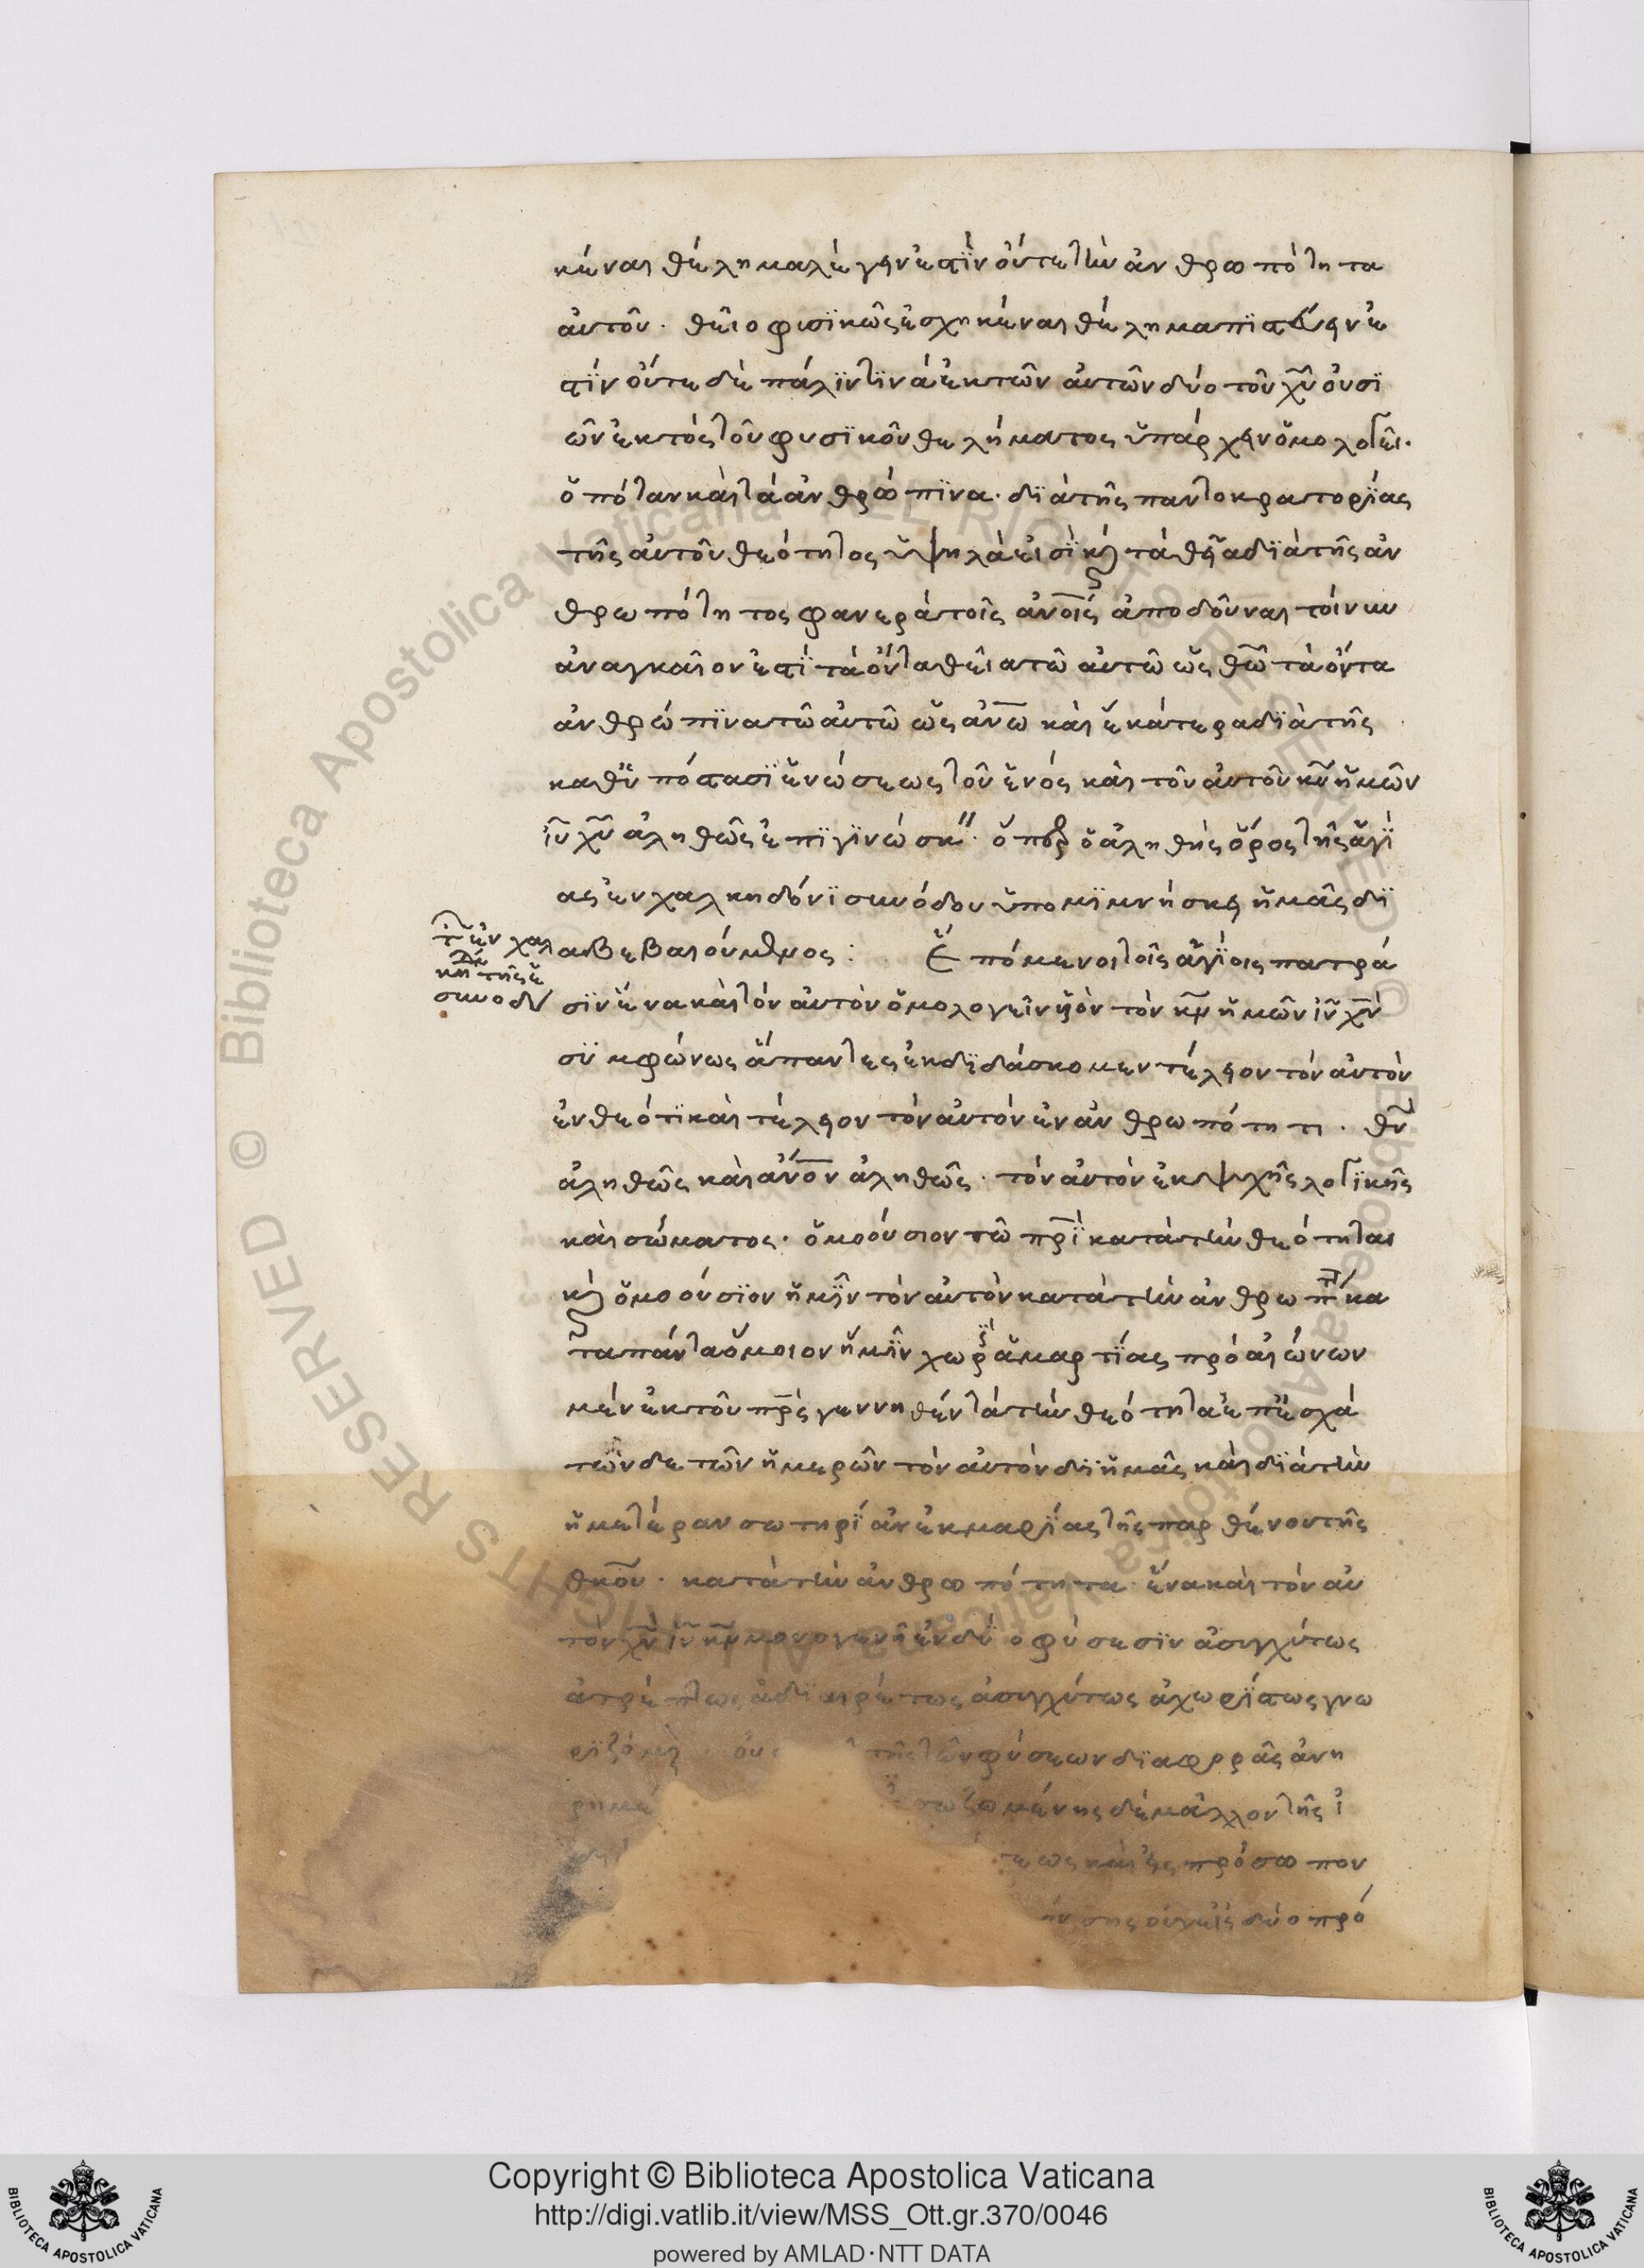 κέναι θέλημα λέγειν ἐστὶν οὔτε τὴν ἀνθρωπότητα
αὐτοῦ. θεῖο φισϊκῶς ἐσχηκέναι θέλημα πϊστεύειν ἐ
στὶν οὔτε δὲ πάλϊν τϊνά ἐκ τῶν αὐτῶν δύο τοῦ χυ οὐσϊ
ῶν ἐκτός τοῦ φυσϊκοῦ θελήματος ὑπάρχειν ὁμολογεῖ.
ὁπόταν καὶ τά ἀνθρώπϊνα. δϊά τῆς παντοκρατορίας
τῆς αὐτοῦ θεότητος ὑψηλά εἰσὶ κ τά θεῖα δϊὰ τῆς ἀν
θρωπότητος φανερά τοῖς ἀνοις ἀποδοῦναι τοίνυν
ἀναγκαῖον ἐστί τά ὄντα θεῖα τῶ αὐτῶ ὡς θω τὰ ὄντα
ἀνθρώπϊνα τῶ αὐτῶ ὡς ἀνω καὶ ἑκάτερα δϊὰ τῆς
καθ ὑπόστασϊ ἑνώσεως τοῦ ἑνός καὶ τοῦ αὐτοῦ κυ ἡμῶν
ιυ χυ ἀληθῶς ἐπϊγϊνώσκ. ὅπερ ὁ ἀληθὴς ὅρος τῆς ἁγί
ας ἐν χαλκηδόνϊ συνόδου ὑπομϊμνήσκει ἡμᾶς δϊ
αβεβαιούμενος : Ἑπόμενοι τοῖς ἁγίοις πατρά
τῆς ἐν χαλ
κηδ τῆς
συνοδου
σϊν ἕνα καὶ τόν αὐτὸν ὁμολογεῖν υἱὸν τὸν κν ἡμῶν ιν χν
συμφώνως ἅπαντες ἐκδϊδάσκομεν τέλειον τόν αὐτόν
ἐν θεότϊ καὶ τέλειον τὸν αὐτόν ἐν ἀνθρωπότητι. θν
ἀληθῶς καὶ ἀνον ἀληθῶς. τόν αὐτὸν ἐκ ψυχῆς λογϊκῆς
καὶ σώματος. ὁμοούσιον τῶ πρϊ κατὰ τὴν θεότητα
κ ὁμοούσϊον ἡμῖν τὸν αὐτὸν κατὰ τὴν ἀνθρωπτ κα
τα πάντα ὅμοιον ἡμῖν χωρίς ἁμαρτίας πρό αἰώνων
μέν ἐκ τοῦ πρς γεννηθέντα τὴν θεότητα ἐπ ἐσχά
τῶν δε τῶν ἡμερῶν τὸν αὐτόν δϊ ἡμᾶς καὶ δϊά τὴν
ἡμετέραν σωτηρίαν ἐκ μαρίας τῆς παρθένου τῆς
θκου. κατὰ τὴν ἀνθρωπότητα. ἕνα καὶ τόν αὐ
τόν χν ιν κν μονογενῆ ἐν δύο φύσεσϊν ἀσυγχύτως
ἀτρέπτως ἀδϊαιρέτως ἀσυγχύτως ἀχωρίστως γνω
ρϊζόμ οὐ τῆς τῶν φύσεων δϊαφορᾶς ἀνη
ρημέ σωζωμένης δέ μᾶλλον τῆς ἰ
εως καὶ εἰς πρόσωπον
σης οὐκ εἰς δύο πρό
Copyright © Biblioteca Apostolica Vaticana
http://digi.vatlib.it/view/MSS_Ott.gr.370/0046
powered by AMLAD·NTT DATA
BIBLIOTECA APOSTOLICA VATICANA
BIBLIOTECA APOSTOLICA VATICANA